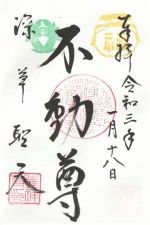 奉拝 令和三年
一月十八日
不動尊
深草 聖天